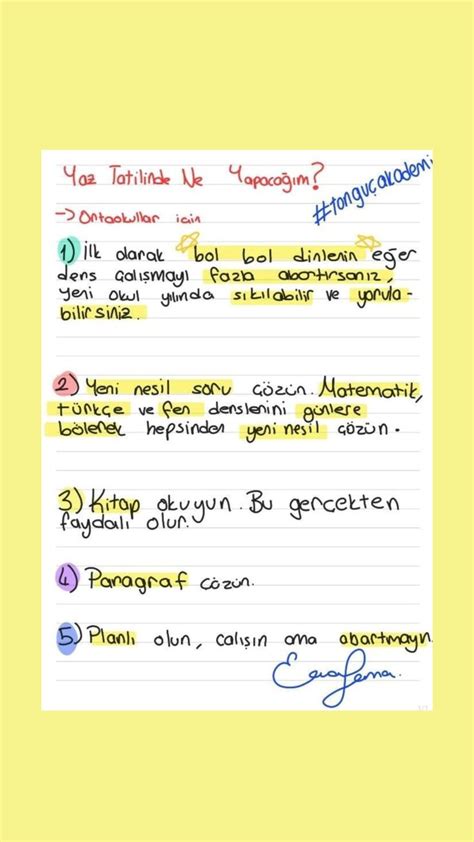 Yaz Tatilinde Ne Yapacağım?
#tonguçakademi
-> Ortaokullar için
1) İlk olarak bol bol dinlenin eğer
ders çalışmayı fazla abartırsanız,
yeni okul yılında sıkılabilir ve yorula-
bilirsiniz.
2) Yeni nesil soru çözün. Matematik,
türkçe ve fen derslerini günlere
bölerek hepsinden yeni nesil çözün.
3) Kitap okuyun. Bu gerçekten
faydalı olur.
4) Paragraf çözün.
5) Planlı olun, çalışın ama abartmayın